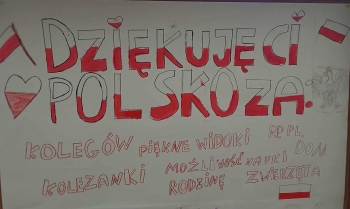 DZIĘKUJĘ CI
POLSKO ZA:
KOLEGÓW PIĘKNE WIDOKI
KOLEŻANKI MOŻLIWOŚĆ NAUKI DOM
RODZINĘ ZWIERZĘTA